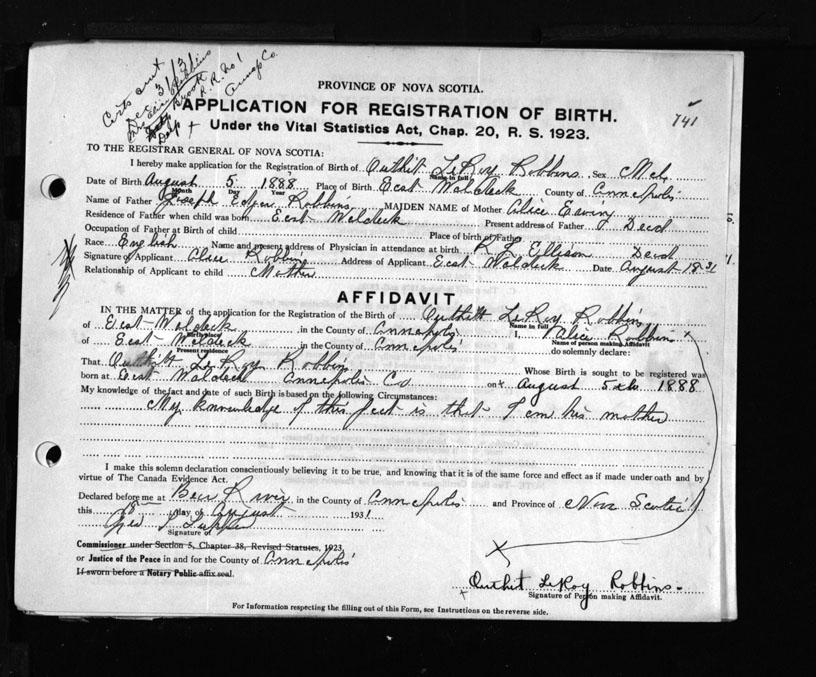 Certs
Dec 3/31
R. R. No 1
Annap Co.
741
PROVINCE OF NOVA SCOTIA.
APPLICATION FOR REGISTRATION OF BIRTH.
Under the Vital Statistics Act, Chap. 20, R. S. 1923.
TO THE REGISTRAR GENERAL OF NOVA SCOTIA:
I hereby make application for the Registration of Birth of Outhit LeRoy Robbins Sex Male
Name in full
Date of Birth August 5 1888 Place of Birth East Waldeck County of Annapolis
Month Day Year
Name of Father Joseph Edger Robbins MAIDEN NAME of Mother Alice
Residence of Father when child was born East Waldeck Present address of Father Dead
Occupation of Father at Birth of child Place of birth of Father
Race English Name and present address of Physician in attendance at birth R L Ellison Dead
Signature of Applicant Alice Robbins Address of Applicant East Waldeck Date August 18-31
Relationship of Applicant to child Mother
AFFIDAVIT
IN THE MATTER of the application for the Registration of the Birth of Outhitt LeRoy Robbins
Name in full
of East Waldeck, in the County of Annapolis I, Alice Robbins x
Birthplace Name of person making Affidavit
of East Waldeck in the County of Annapolis do solemnly declare:
Present residence
That Outhitt LeRoy Robbins Whose Birth is sought to be registered was
born at East Waldeck Annapolis Co on August 5th 1888
My knowledge of the fact and date of such Birth is based on the following Circumstances:
My knowledge of this fact is that I am his mother
I make this solemn declaration conscientiously believing it to be true, and knowing that it is of the same force and effect as if made under oath and by
virtue of The Canada Evidence Act.
Declared before me at Bear River, in the County of Annapolis and Province of Nova Scotia
this 18 day of August 1931
Geo Tupper
Signature of
Commissioner under Section 5, Chapter 38, Revised Statutes, 1923,
or Justice of the Peace in and for the County of Annapolis
If sworn before a Notary Public affix seal.
x
x Outhit LeRoy Robbins
Signature of Person making Affidavit.
For Information respecting the filling out of this Form, see Instructions on the reverse side.